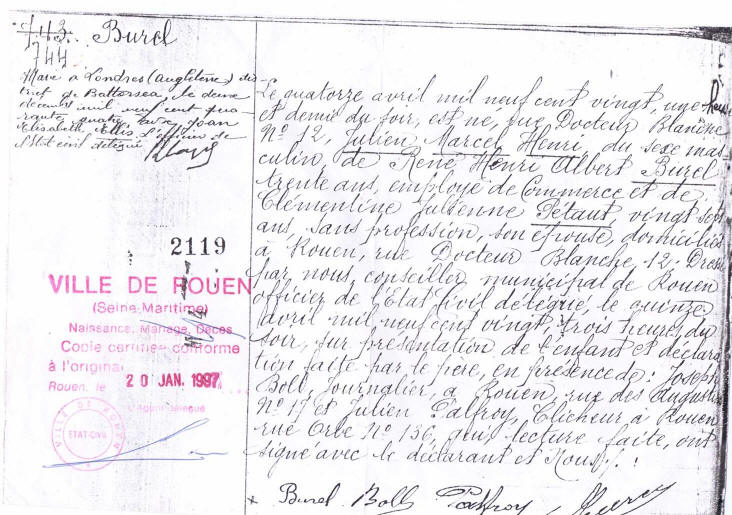 743. Burel
744
Marié à Londres (Angleterre) dis-
trict de Battersea, le deux
décembre mil neuf cent qua-
rante quatre avec Joan
Elisabeth Ellis L'officier de
l'état civil délégué
Le quatorze avril mil neuf cent vingt, une heure
et demie du soir, est né, rue Docteur Blanche
N° 12, Julien Marcel Henri, du sexe mas
culin, de René Henri Albert Burel
trente ans, employé de Commerce et de
Clémentine Julienne Pétaut, vingt sept
ans, sans profession, son épouse, domiciliés
à Rouen, rue Docteur Blanche, 12; Dressé
par nous, conseiller municipal de Rouen
officier de l'Etat Civil délégué, le quinze
avril mil neuf cent vingt, trois heures du
soir, sur présentation de l'enfant et déclara
tion faite par le père, en présence de: Joseph
Boll, Journalier, à Rouen, rue des Augustins
N° 17 et Julien Palfroy, Clicheur à Rouen
rue Orbe N° 136, qui, lecture faite, ont
signé avec le déclarant et Nous.
Burel Boll Palfroy
2119
VILLE DE ROUEN
(Seine-Maritime)
Naissance, Mariage, Décès
Copie certifiée conforme
à l'original
Rouen, le 20 JAN. 1997
L'Agent délégué
VILLE DE ROUEN
ETAT-CIVIL